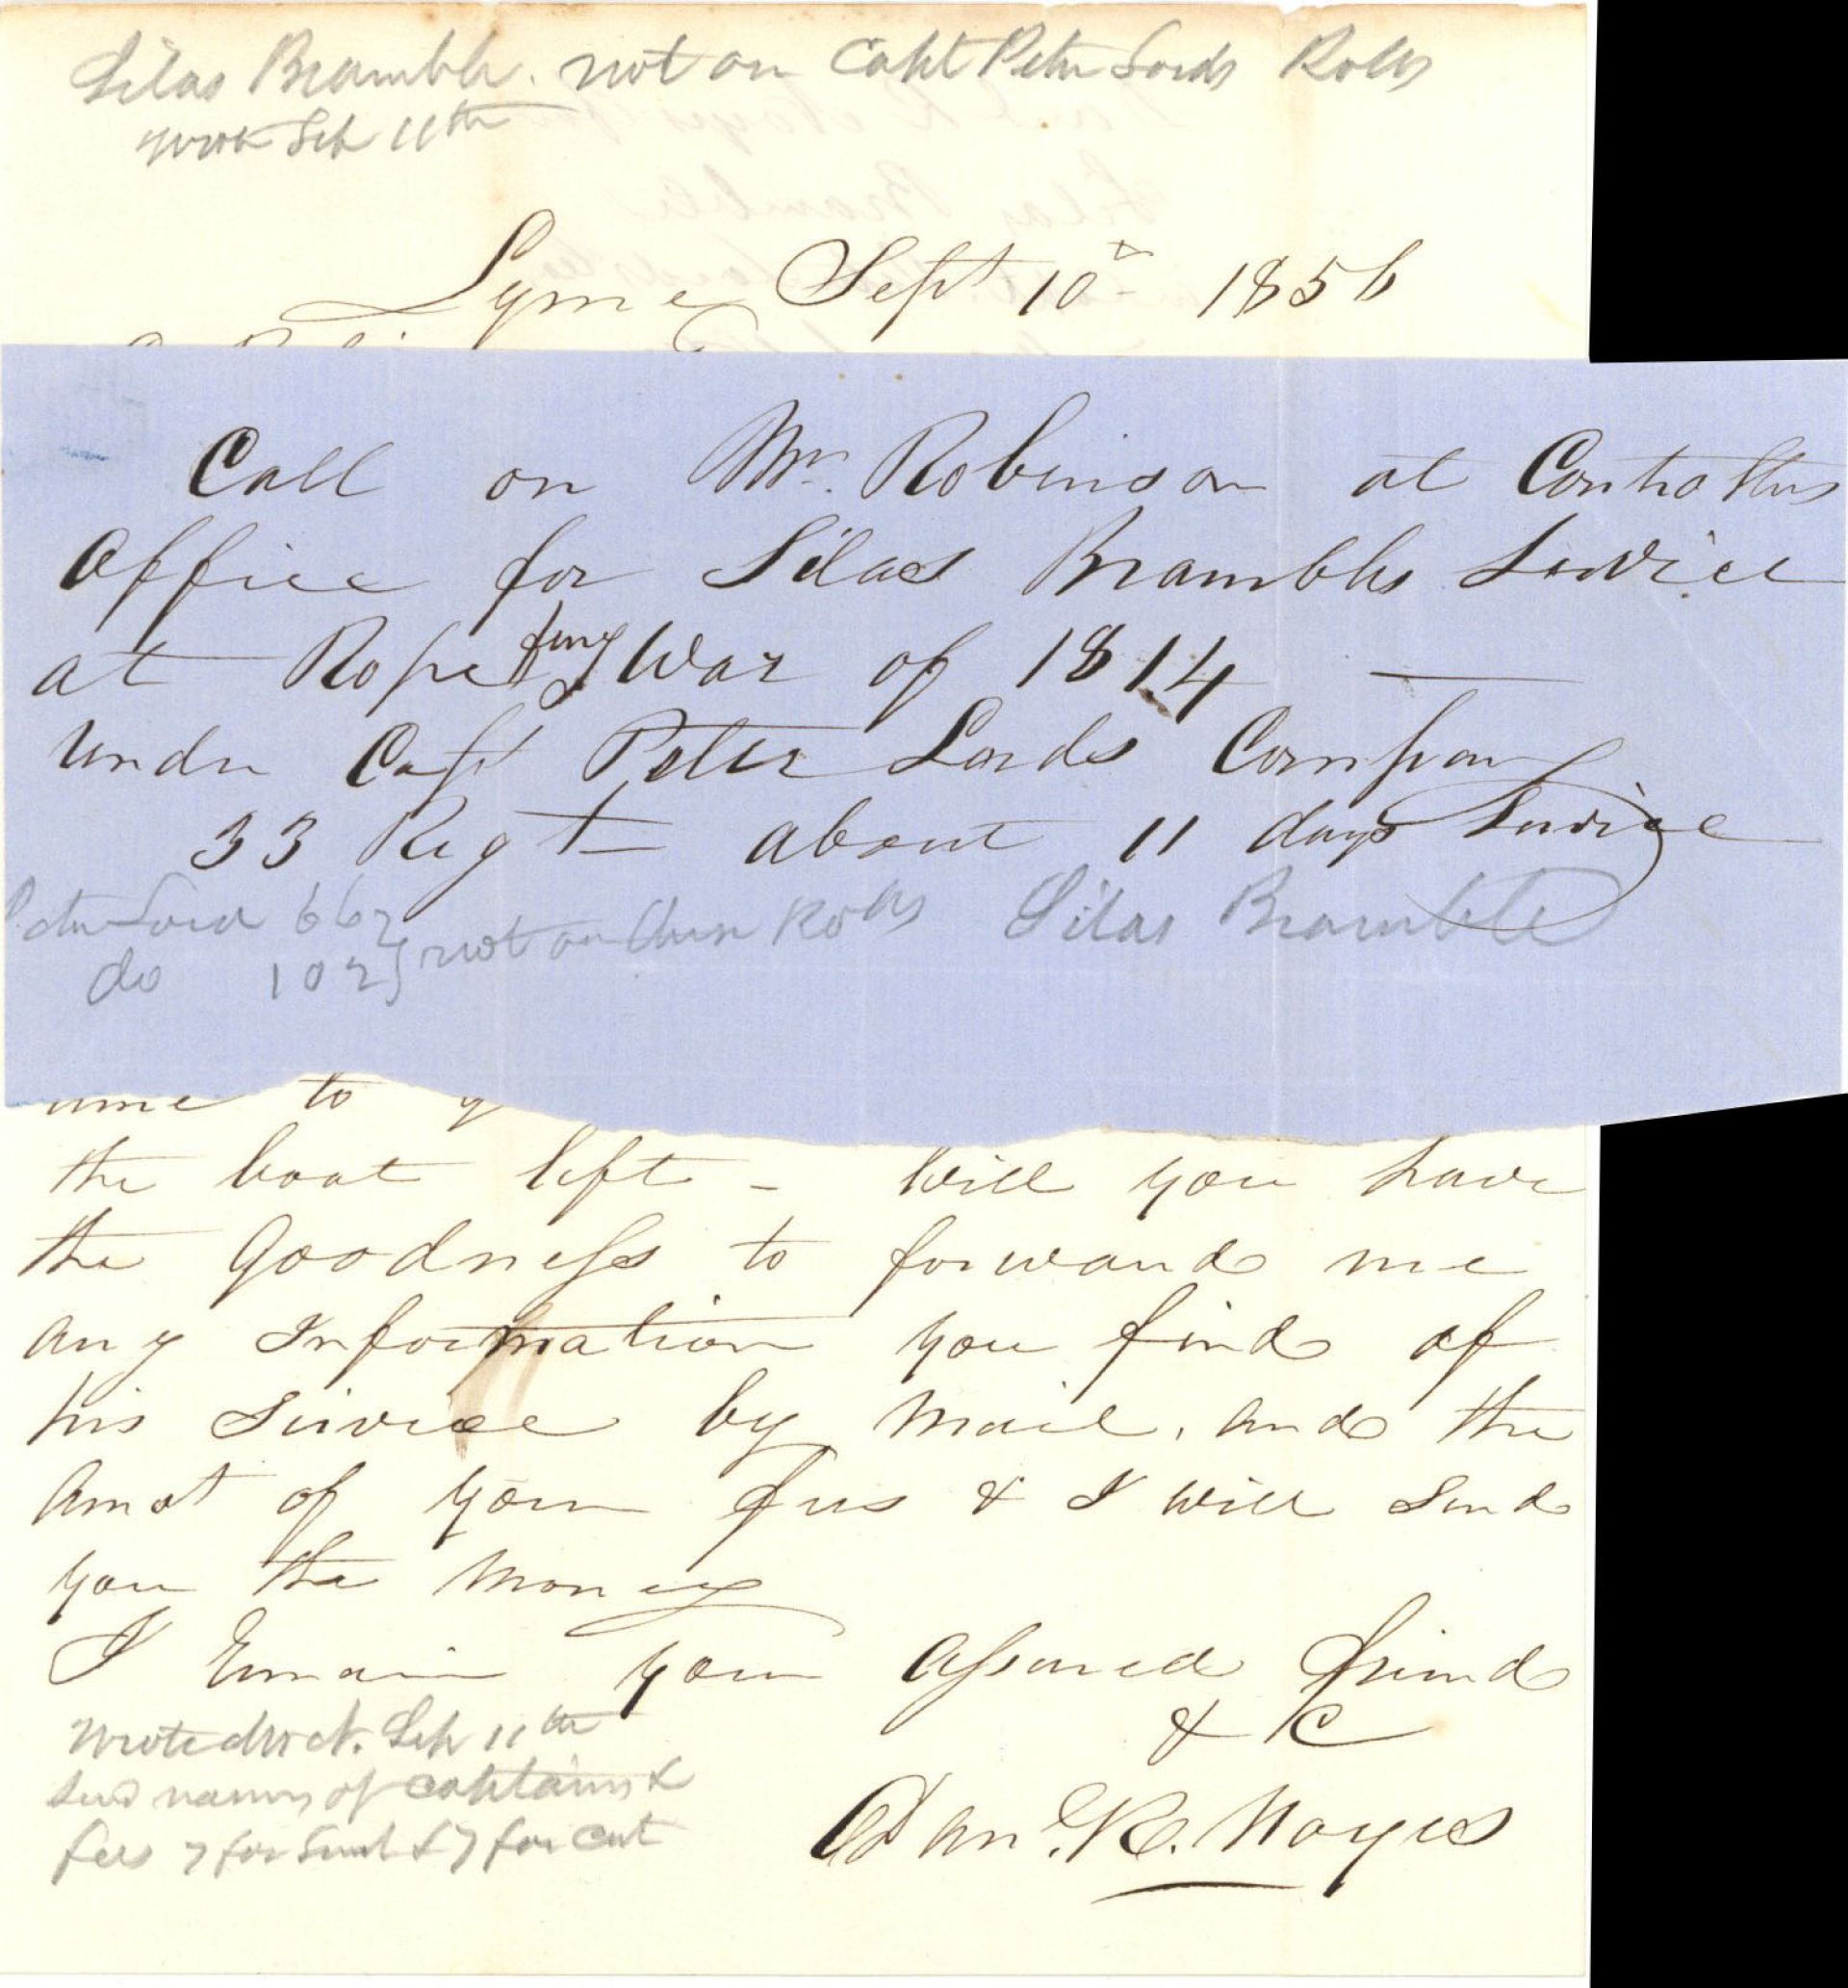 Silas Bramble. not on Capt Peter Lords Rolls
wrote Sep 11th
Lyme Sept 10th 1856
Call on Mr. Robinson at Controllers
Office for Silas Brambles Service
at Rope ferry War of 1814 —
Under Capt Peter Lords Company
33 Regt — about 11 days Service
Peter Lord 662
do 102 } not on these Rolls Silas Bramble
to
the boat left - Will you have
the Goodness to forward me
any Information you find of
his Service by Mail, and the
Amot of your fees & I will Send
you the Money
I Remain your Assured friend
& C
Wrote Mr N. Sep 11th
send names of captains &
fees 7 for Search & 7 for cert
Dan. R. Noyes